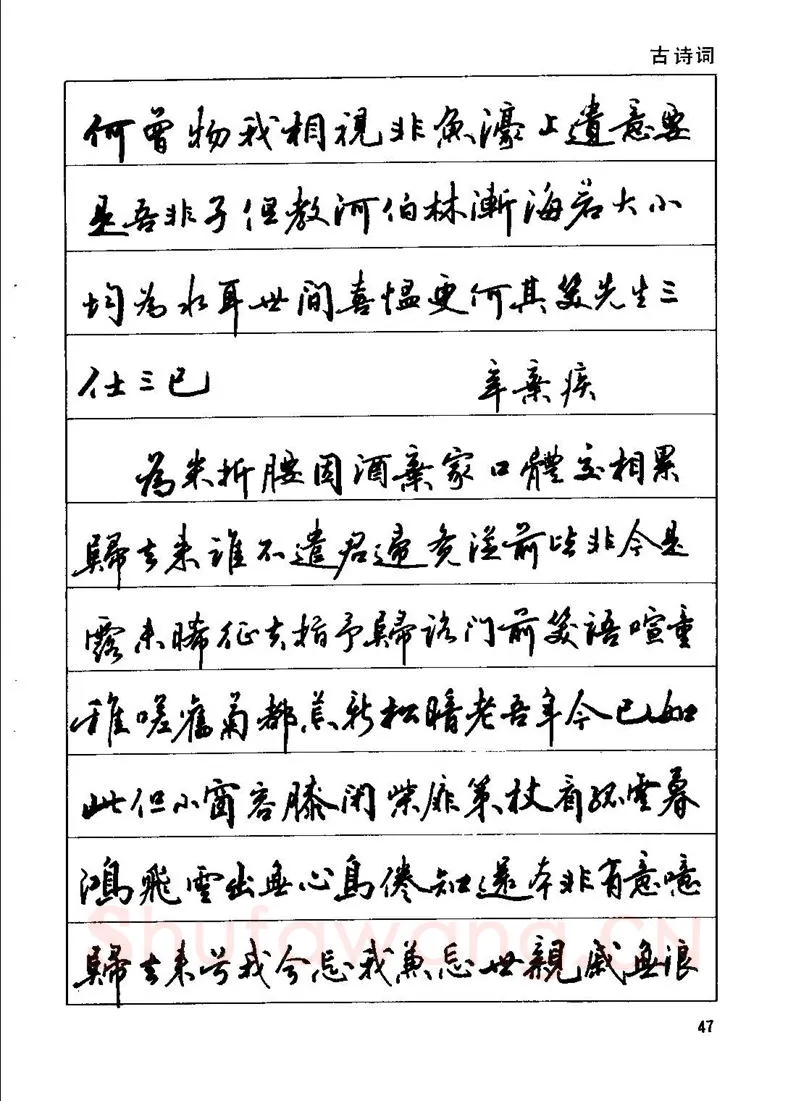 古诗词
何曾物我相視非魚濠上遺意要
是吾非子但教河伯林漸海若大小
均為水耳世間喜愠更何其笑先生三
仕三已 辛棄疾
為米折腰因酒棄家口體交相累
歸去来誰不遣君歸覺從前皆非今是
露未晞征夫指予歸路门前笑語喧童
稚嗟舊菊都荒新松暗老吾年今已如
此但小窗容膝閉柴扉策杖看孤雲暮
鴻飛雲出無心鳥倦知還本非有意噫
Shufawang.CN
歸去来兮我今忘我兼忘世親戚無浪
47